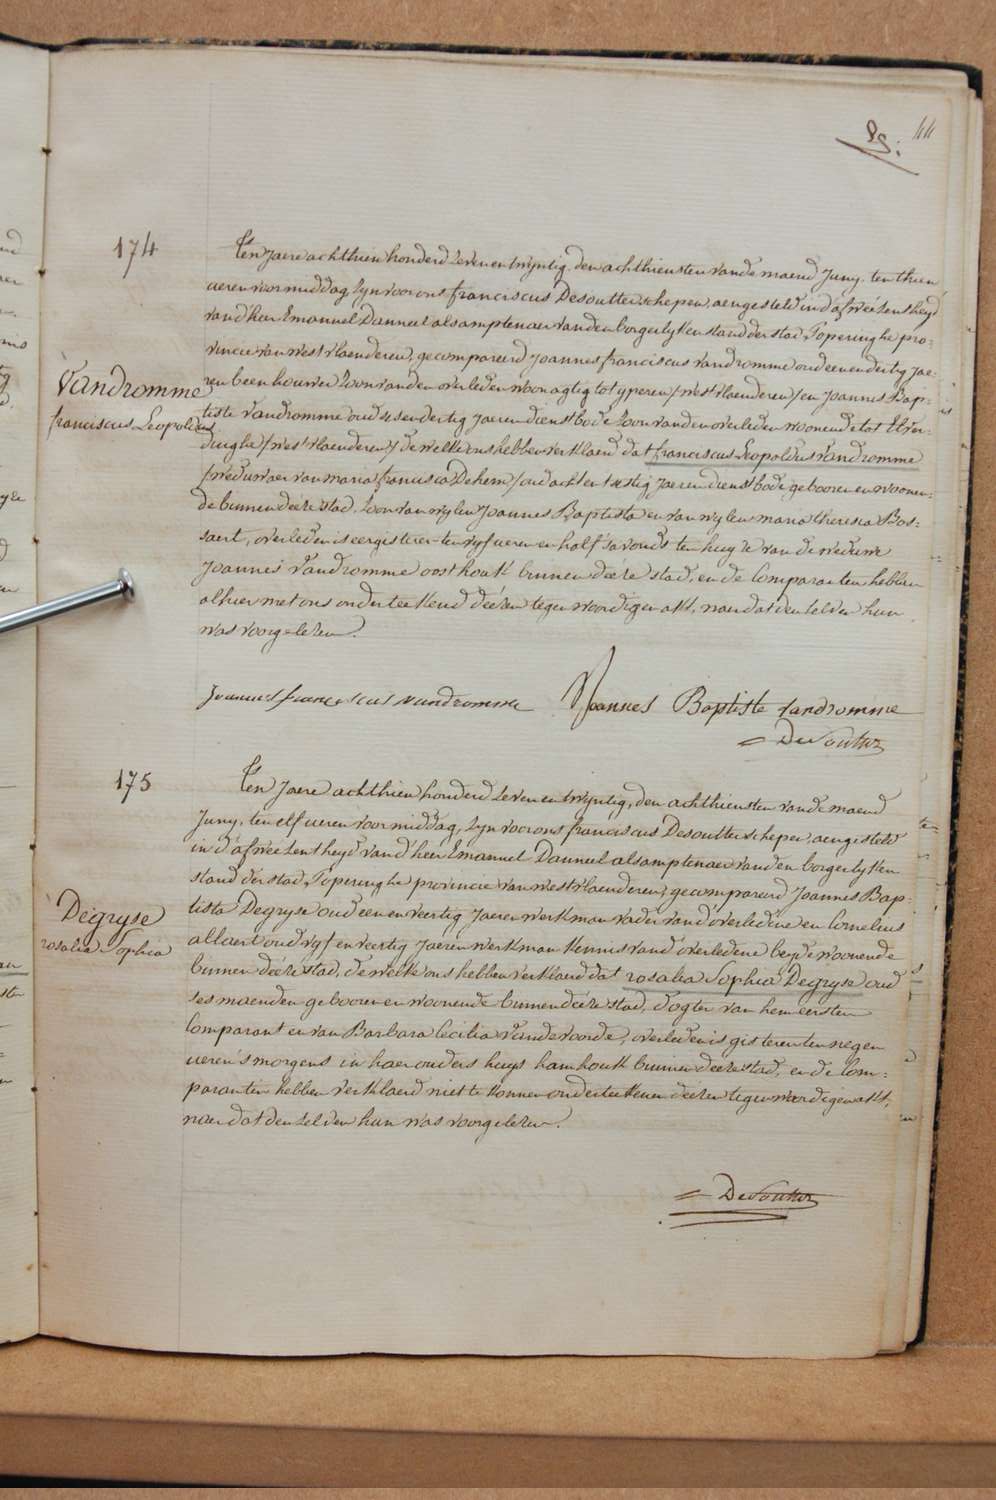 44
174
Ten Jaere achthien honderd zeven en twyntig, den achthiensten van de maend Juny, ten thien
ueren voormiddag, zyn voor ons franciscus Desoutter schepen, aengesteld in d'afweézensheyd
van d'heer Emanuel Danneel als amptenaer van den borgerlyken stand der stad Poperinghe pro=
vincie van westvlaenderen, gecompareerd Joannes franciscus Vandromme oud een en dertig jae=
ren beenhouwer zoon van den overleden woonagtig tot yperen /westvlaenderen/ en Joannes Bap=
tiste Vandromme oud sesendertig jaeren dienstbode zoon van den overleden woonende tot Elver=
dinghe /westvlaenderen/ de welke ons hebben verklaerd dat franciscus Leopoldus Vandromme
/weduwaer van maria francisca Dehem/ oud acht en sestig jaeren dienstbode gebooren en woonen=
de binnen deéze stad, zoon van wylen Joannes Baptista en van wylen maria theresia Bos=
saert, overleden is eergisteren ten vyf ueren en half s'avonds ten huyze van de weduwe
Joannes Vandromme oosthoek binnen deéze stad, en de Comparanten hebben
alhier met ons onderteekend deézen tegenwoordigen akt, naer dat den zelven hun
was voorgelezen.
Vandromme
franciscus Leopoldus
Joannes franciscus vandromme Joannes Baptiste Vandromme
DeSoutter
175
Ten Jaere achthien honderd zeven en twyntig, den achthiensten van de maend
Juny, ten elf ueren voormiddag, zyn voor ons franciscus Desoutter schepen, aengesteld
in d'afweézentheyd van d'heer Emanuel Danneel als amptenaer van den borgerlyken
stand der stad Poperinghe provincie van westvlaenderen, gecompareerd Joannes Bap=
tista Degryse oud een en veertig jaeren werkman vader van d'overledene en Cornelius
allaert oud vyf en veertig jaeren werkman kennis van d'overledene beyde woonende
binnen deéze stad, de welke ons hebben verklaerd dat rosalia Sophia Degryse oud
ses maenden gebooren en woonende binnen deéze stad, dogter van hem eersten
Comparant en van Barbara Cecilia Vandevoorde, overleden is gisteren ten negen
ueren s'morgens in haer ouders huys hamhoek binnen deéze stad, en de Com=
paranten hebben verklaerd niet te konnen onderteekenen deézen tegenwoordigen akt,
naer dat den zelven hun was voorgelezen.
Degryse
rosalia Sophia
DeSoutter